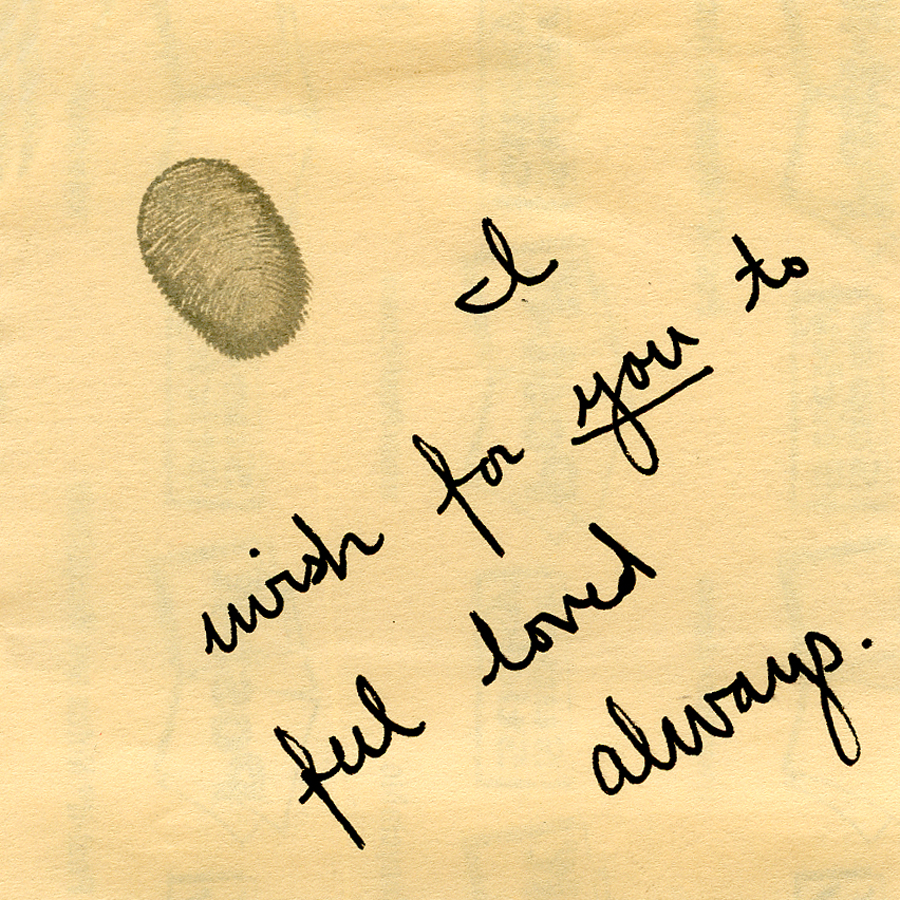 I
wish for you to
feel loved
always.